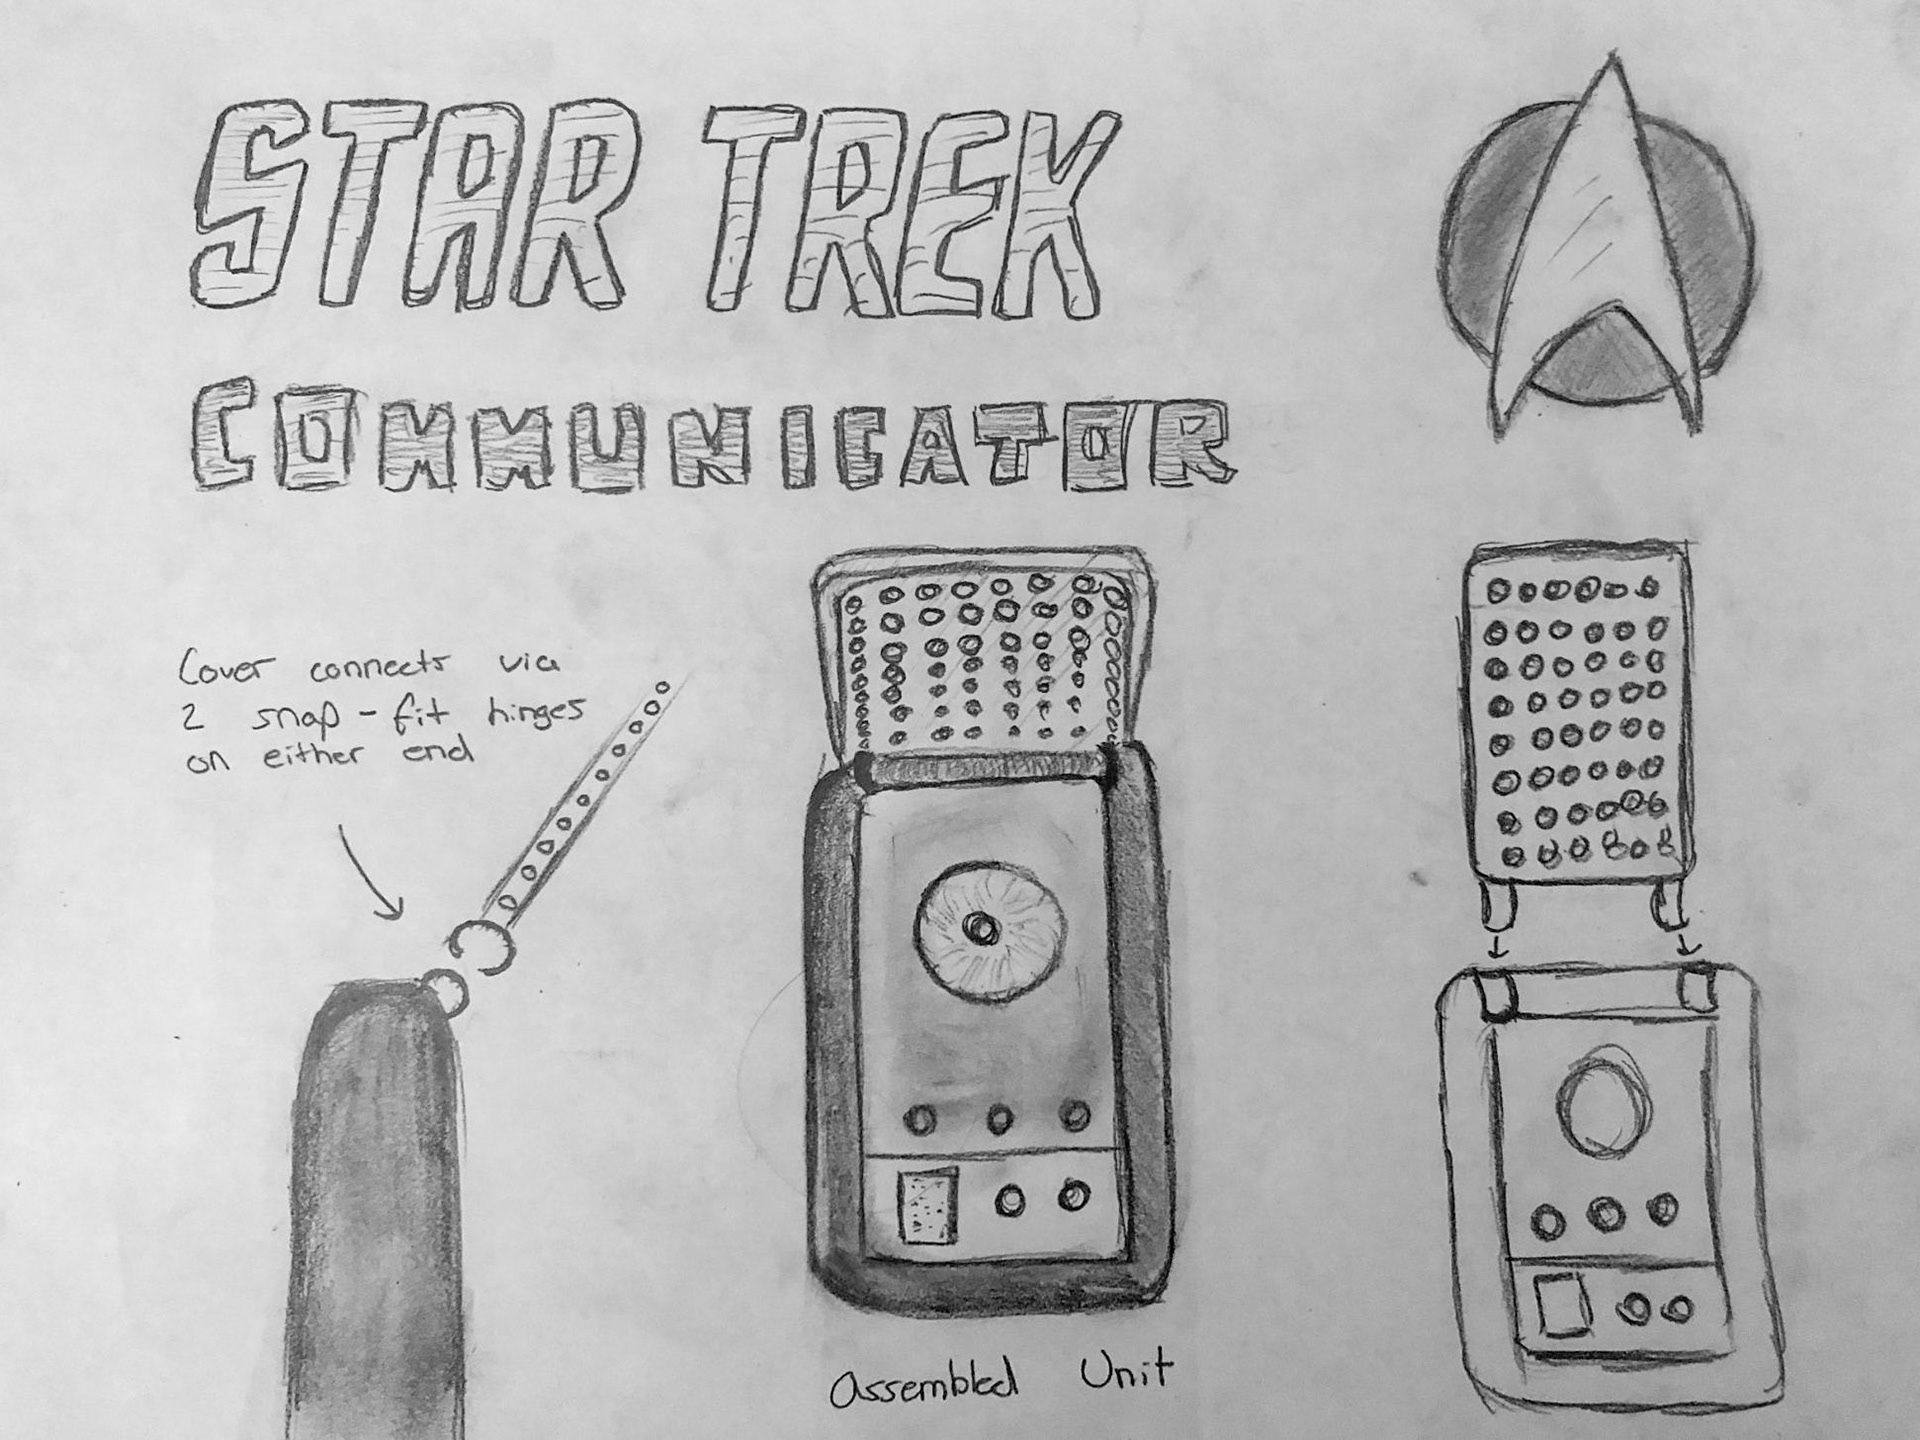 STAR TREK
COMMUNICATOR
Cover connects via
2 snap-fit hinges
on either end
Assembled Unit